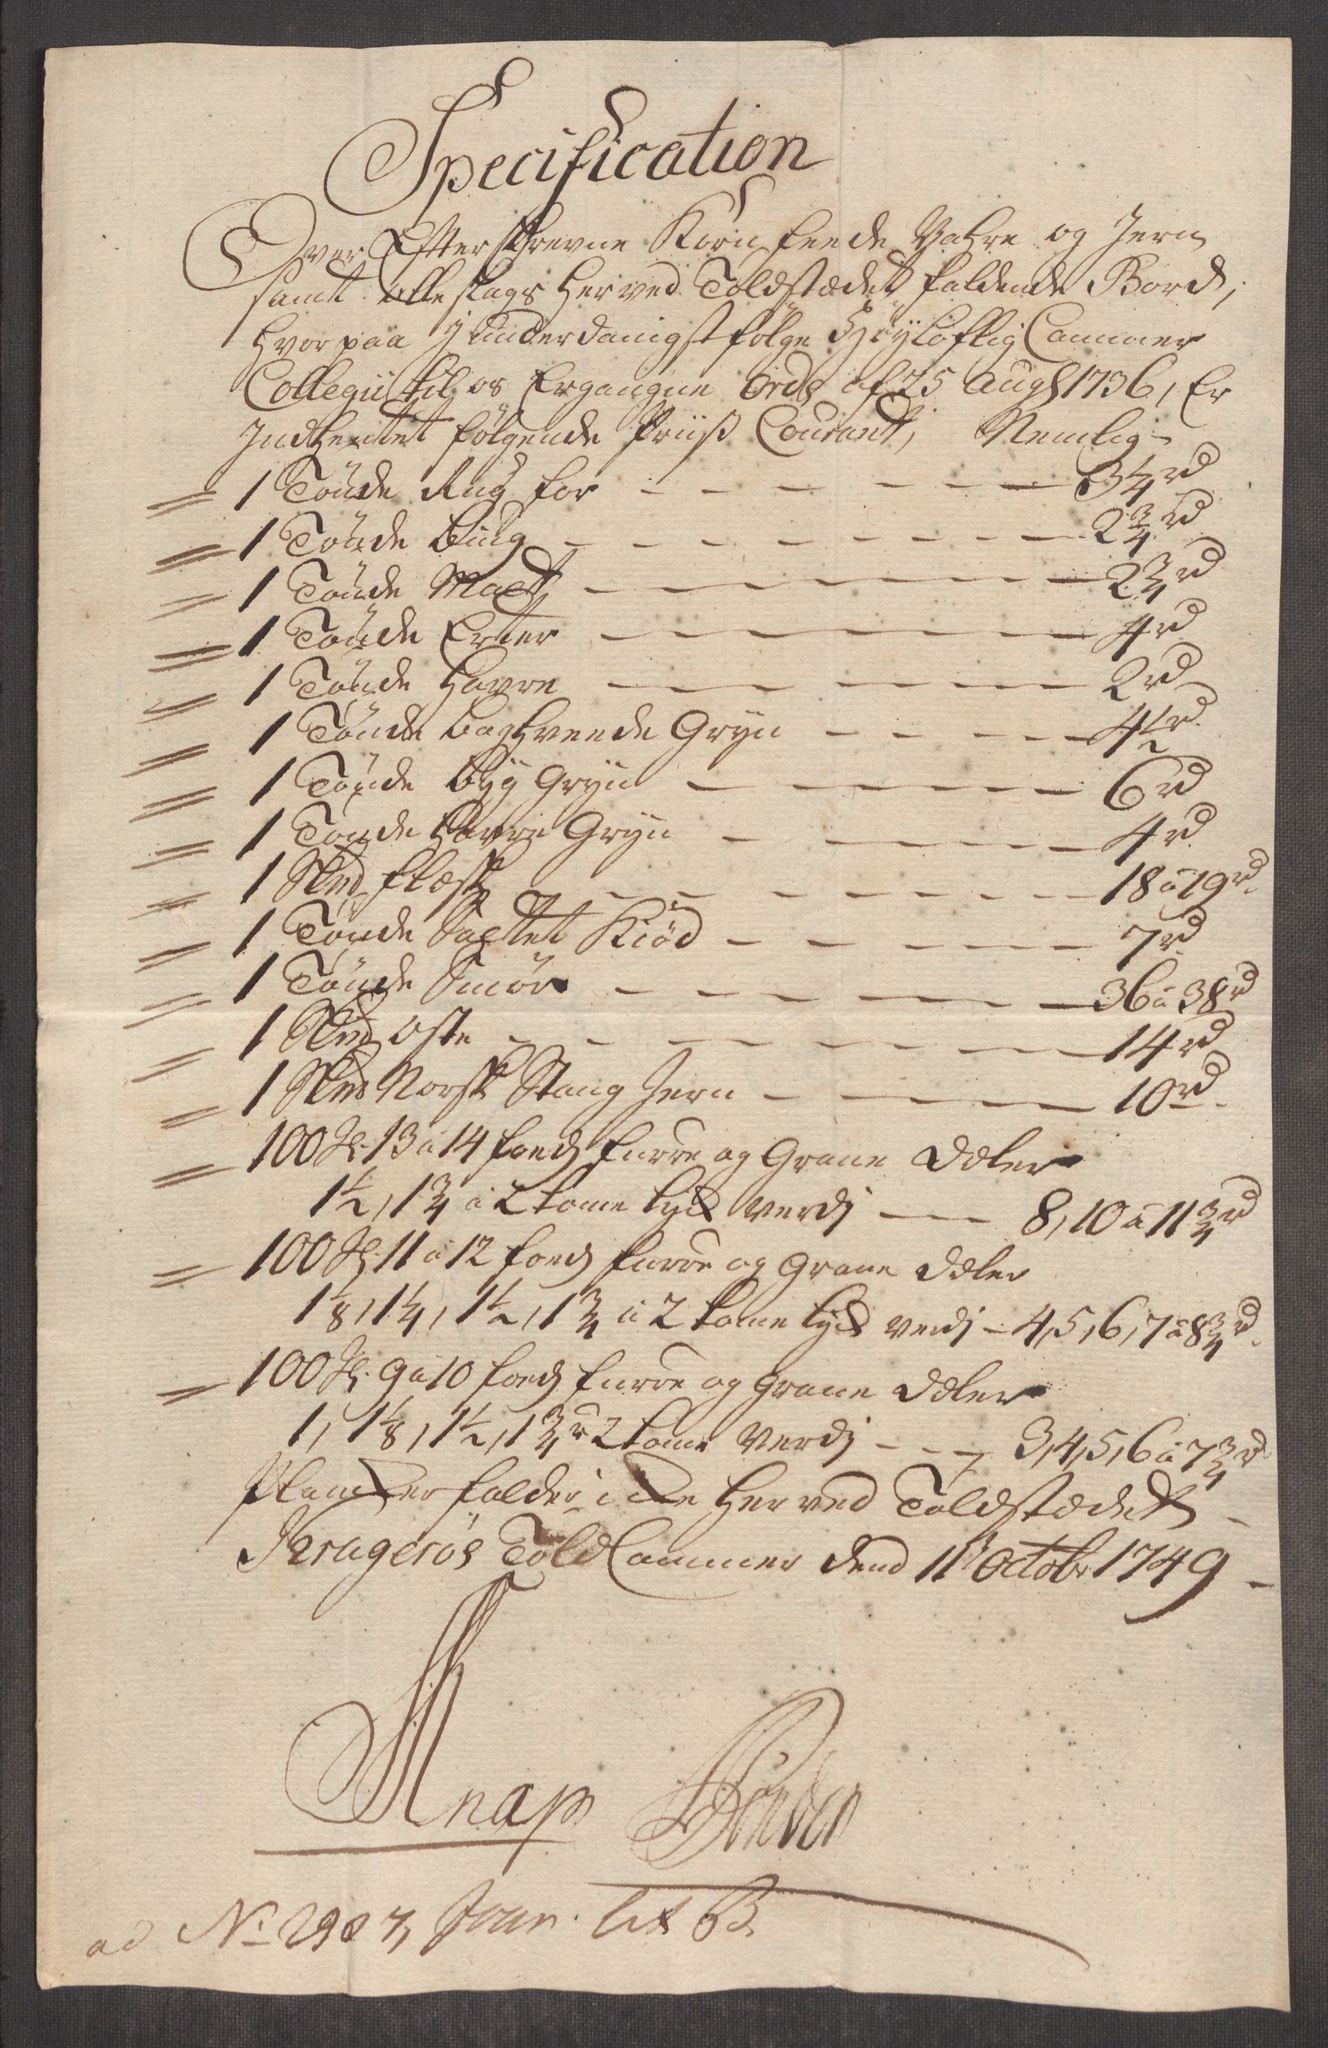 Specification
Over Efterskrevne Korn feede Vahre og Jern
samt alle slags Her ved Toldstædet faldende Bord,
Hvorpaa J underdanigst følge Høyløflig Cammer
Collegii til os Ergangne Ordr af 25 Aug 1736, Er
Indhentet følgende Priiss Courant, Nemlig
1 Tønde Rug for - - - - - - 3 1/4 rd
1 Tønde biug - - - - - - - 2 3/4 rd
1 Tønde Malt - - - - - - 2 3/4 rd
1 Tønde Erter - - - - - - 4 rd
1 Tønde Havre - - - - - - 2 rd
1 Tønde boghveede Gryn - - - - 4 1/2 rd
1 Tønde byg Gryn - - - - - 6 rd
1 Tønde Havre Gryn - - - - 4 rd
1 Skpd flæsk - - - - - - 18 a 19 rd
1 Tønde Saltet Kiød - - - - - 7 rd
1 Tønde Smør - - - - - - 36 a 38 rd
1 Skpd oste - - - - - - - 14 rd
1 Skpd Norsk Stang Jern - - - - 10 rd
100 st. 13 a 14 foeds furre og Grane Deler
1 1/2, 1 3/4 a 2 tome tyk verdj - - 8, 10 a 11 3/4 rd
100 st. 11 a 12 foeds furre og Grane Deler
1 1/8, 1 1/4, 1 1/2, 1 3/4 a 2 tome tyk verdj - 4, 5, 6, 7 a 8 3/4 rd
100 st. 9 a 10 foeds furre og Grane Deler
1, 1 1/8, 1 1/2, 1 3/4 a 2 tome verdj - - - 3, 4, 5, 6 a 7 3/4 rd
Plancker falder icke Her ved Toldstædet
Kragerøs Told Cammer dend 11t Octobr 1749
Knap
ad No 2987, Jour. Lit B